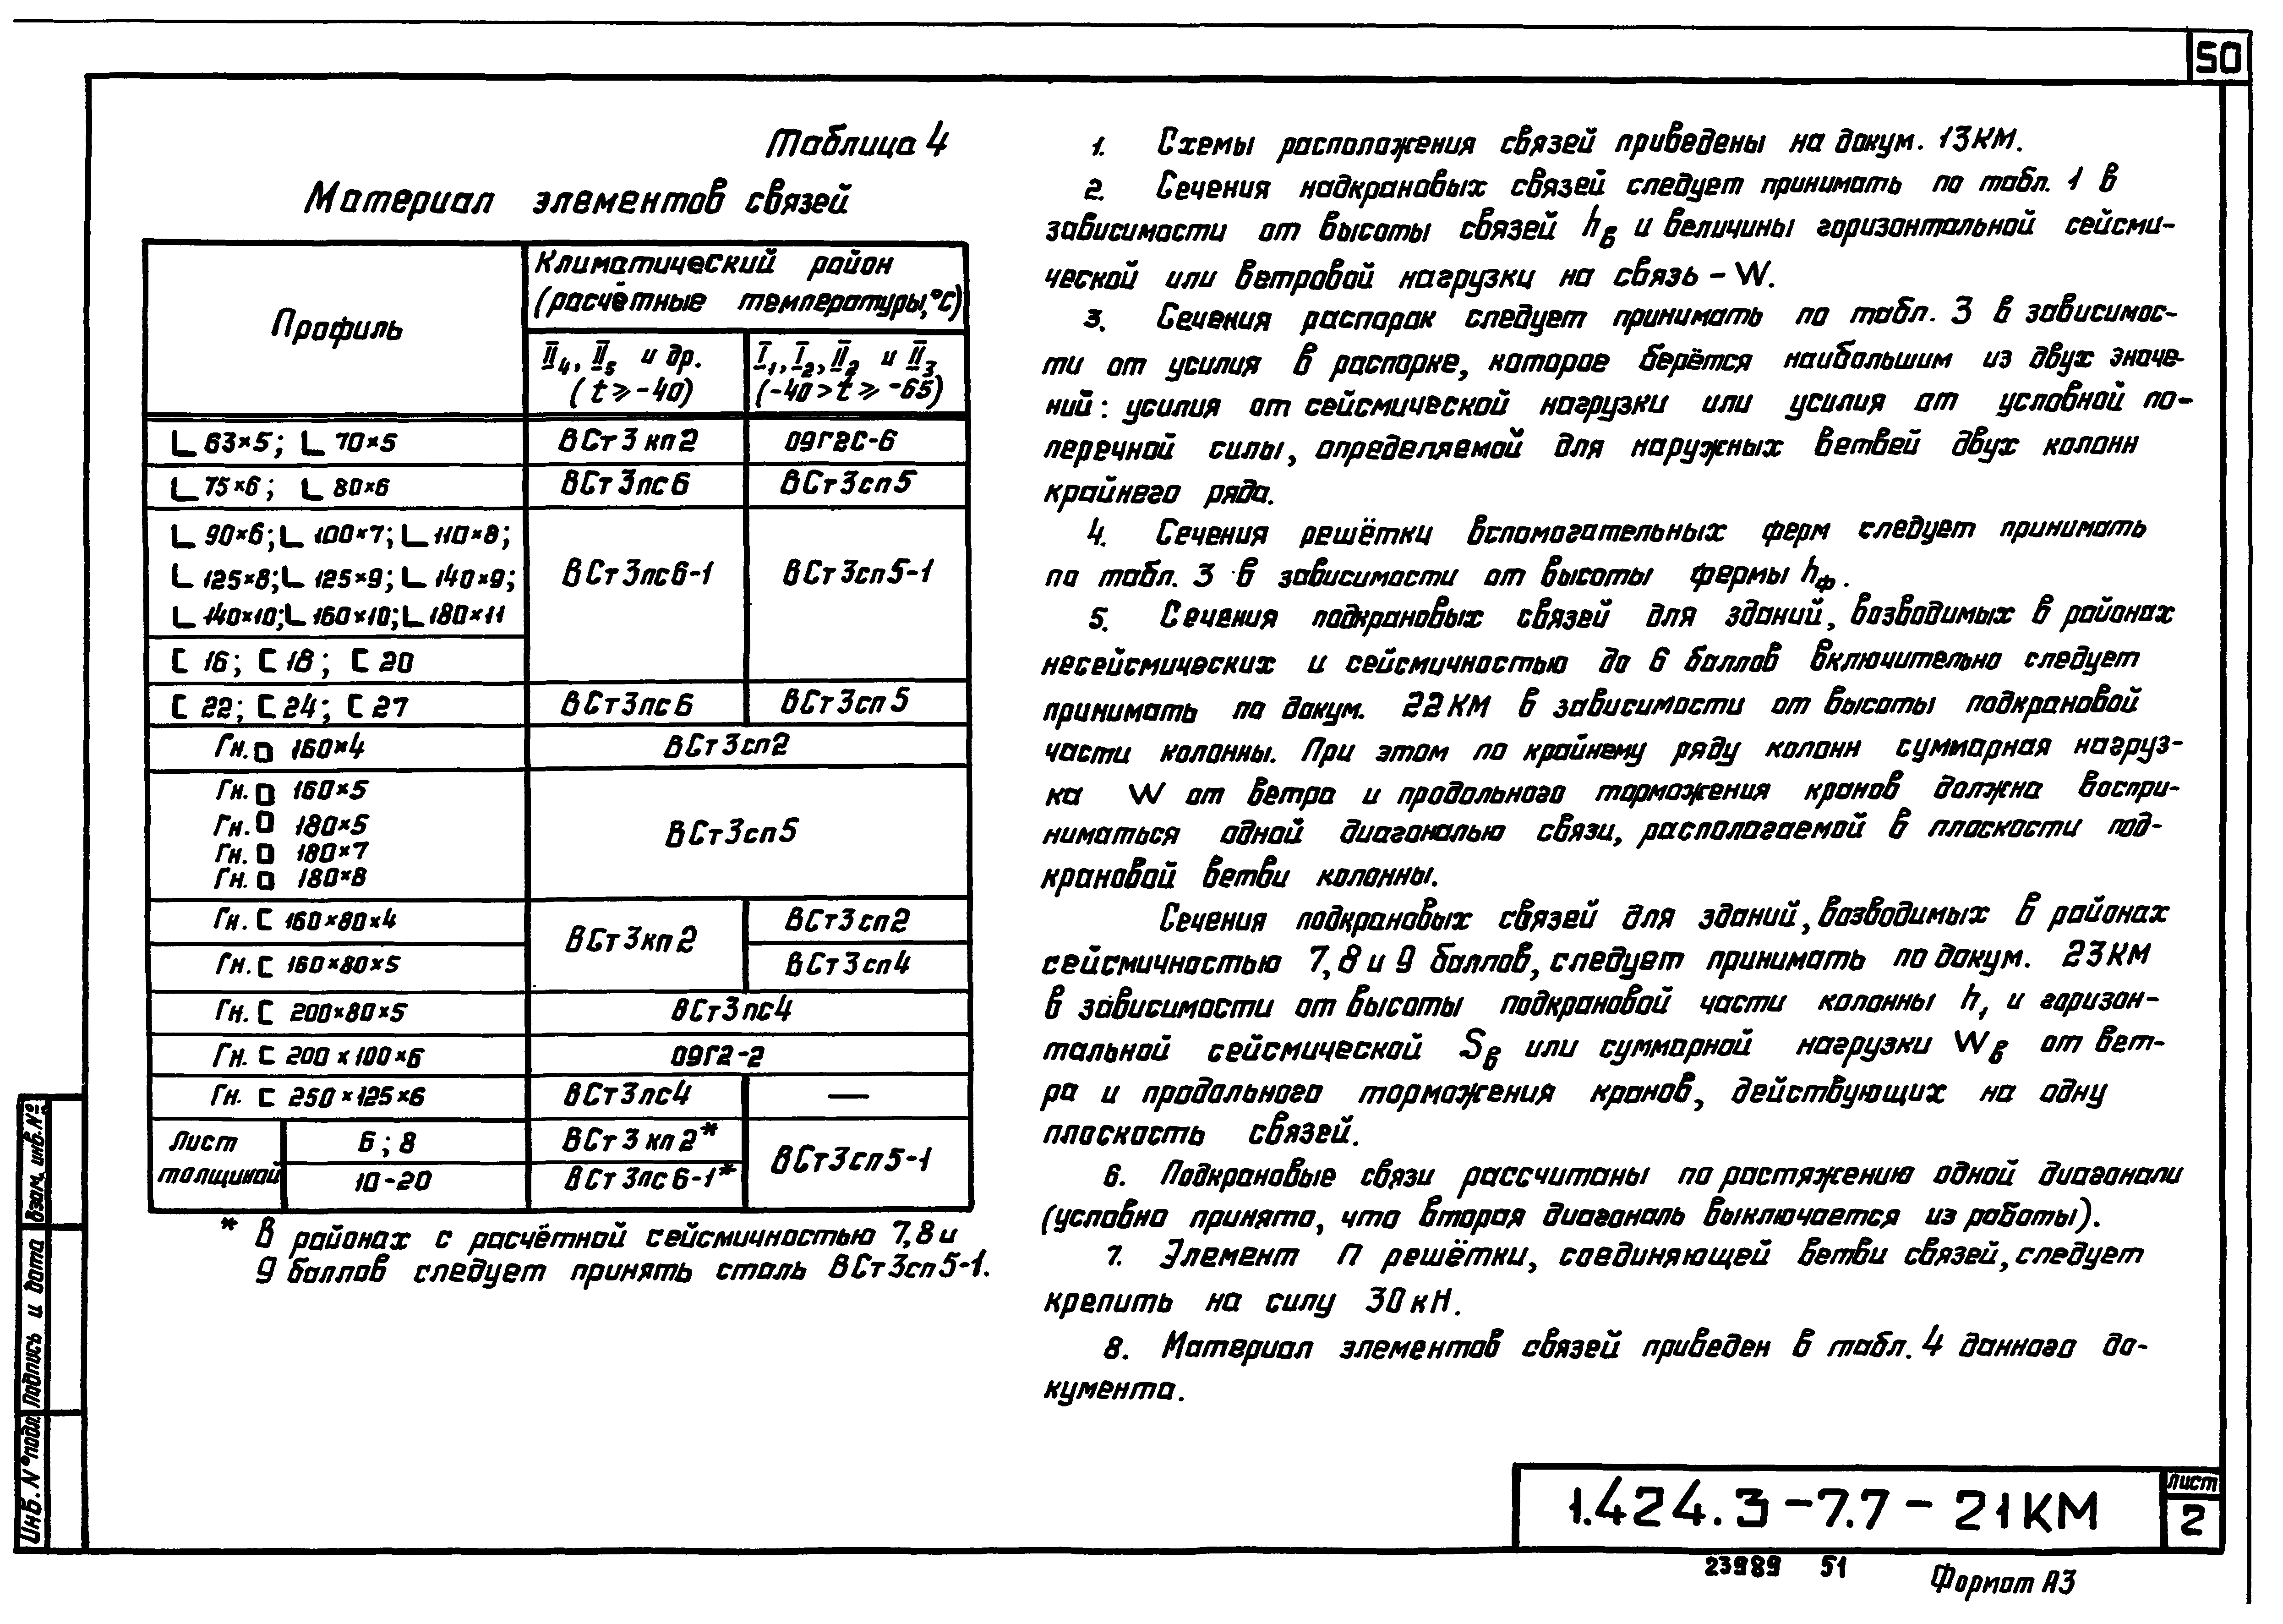 50
Таблица 4
Материал элементов связей
Профиль
Климатический район
(расчётные температуры,°С)
II₄, II₅ и др.
(t ⩾ -40)
I₁, I₂, II₂ и II₃
(-40 > t ⩾ -65)
∟ 63×5; ∟ 70×5
ВСт3кп2
09Г2С-6
∟ 75×6; ∟ 80×6
ВСт3пс6
ВСт3сп5
∟ 90×6; ∟ 100×7; ∟ 110×8;
∟ 125×8; ∟ 125×9; ∟ 140×9;
∟ 140×10; ∟ 160×10; ∟ 180×11
ВСт3пс6-1
ВСт3сп5-1
[ 16; [ 18; [ 20
[ 22; [ 24; [ 27
ВСт3пс6
ВСт3сп5
Гн. □ 160×4
ВСт3сп2
Гн. □ 160×5
Гн. □ 180×5
Гн. □ 180×7
Гн. □ 180×8
ВСт3сп5
Гн. [ 160×80×4
ВСт3кп2
ВСт3сп2
Гн. [ 160×80×5
ВСт3сп4
Гн. [ 200×80×5
ВСт3пс4
Гн. [ 200×100×6
09Г2-2
Гн. [ 250×125×6
ВСт3пс4
—
Лист
толщиной
6; 8
ВСт3кп2*
ВСт3сп5-1
10-20
ВСт3пс6-1*
* В районах с расчётной сейсмичностью 7,8 и
9 баллов следует принять сталь ВСт3сп5-1.
1. Схемы расположения связей приведены на докум. 13КМ.
2. Сечения надкрановых связей следует принимать по табл. 1 в
зависимости от высоты связей hв и величины горизонтальной сейсми-
ческой или ветровой нагрузки на связь - W.
3. Сечения распорок следует принимать по табл. 3 в зависимос-
ти от усилия в распорке, которое берётся наибольшим из двух значе-
ний: усилия от сейсмической нагрузки или усилия от условной по-
перечной силы, определяемой для наружных ветвей двух колонн
крайнего ряда.
4. Сечения решётки вспомогательных ферм следует принимать
по табл. 3 в зависимости от высоты фермы hф.
5. Сечения подкрановых связей для зданий, возводимых в районах
несейсмических и сейсмичностью до 6 баллов включительно следует
принимать по докум. 22КМ в зависимости от высоты подкрановой
части колонны. При этом по крайнему ряду колонн суммарная нагруз-
ка W от ветра и продольного торможения кранов должна воспри-
ниматься одной диагональю связи, располагаемой в плоскости под-
крановой ветви колонны.
Сечения подкрановых связей для зданий, возводимых в районах
сейсмичностью 7,8 и 9 баллов, следует принимать по докум. 23КМ
в зависимости от высоты подкрановой части колонны h₁ и горизон-
тальной сейсмической Sв или суммарной нагрузки Wв от вет-
ра и продольного торможения кранов, действующих на одну
плоскость связей.
6. Подкрановые связи рассчитаны по растяжению одной диагонали
(условно принято, что вторая диагональ выключается из работы).
7. Элемент П решётки, соединяющей ветви связей, следует
крепить на силу 30 кН.
8. Материал элементов связей приведен в табл. 4 данного до-
кумента.
Взам. инв.№
Подпись и дата
Инв. № подл.
1.424.3-7.7-21КМ
лист
2
23989 51
Формат А3